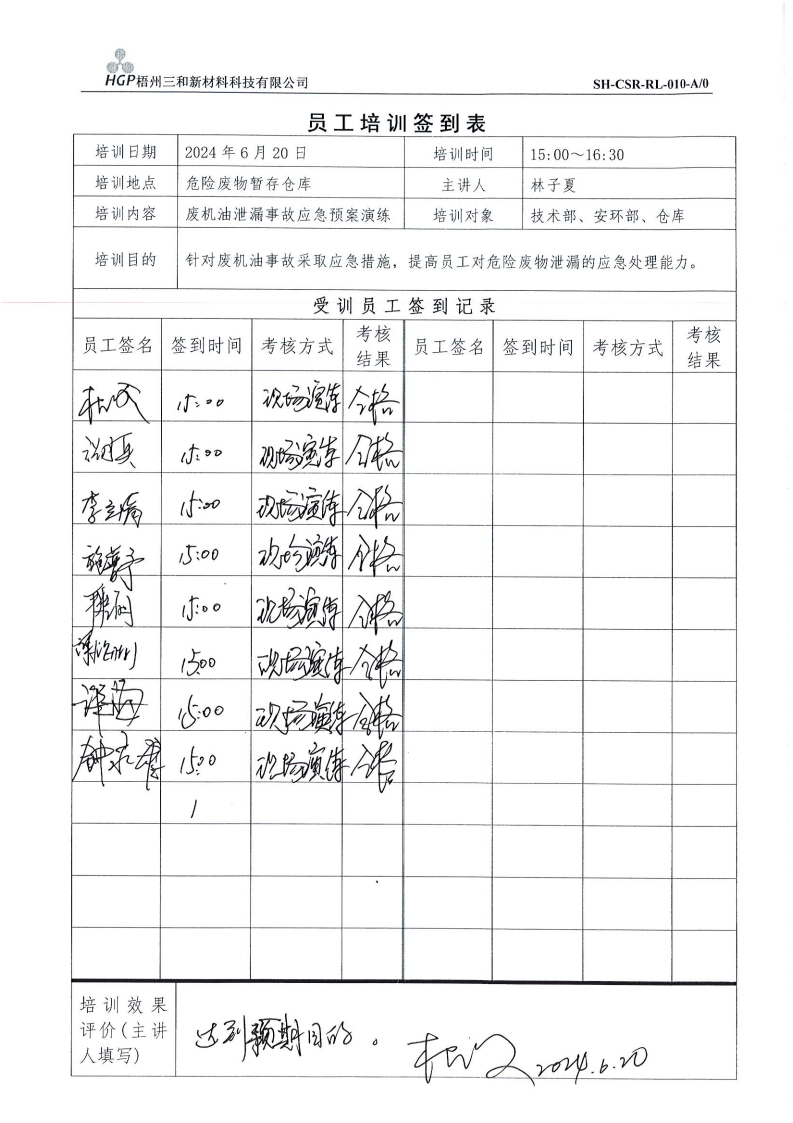 HGP梧州三和新材料科技有限公司 SH-CSR-RL-010-A/0
员工培训签到表
培训日期 2024年6月20日 培训时间 15:00～16:30
培训地点 危险废物暂存仓库 主讲人 林子夏
培训内容 废机油泄漏事故应急预案演练 培训对象 技术部、安环部、仓库
培训目的 针对废机油事故采取应急措施，提高员工对危险废物泄漏的应急处理能力。
受训员工签到记录
员工签名 签到时间 考核方式 考核结果 员工签名 签到时间 考核方式 考核结果
15:00 现场演练 合格
15:00 现场演练 合格
15:00 现场演练 合格
15:00 现场演练 合格
15:00 现场演练 合格
15:00 现场演练 合格
15:00 现场演练 合格
15:00 现场演练 合格
培训效果
评价(主讲 达到预期目的。
人填写) 2024.6.20